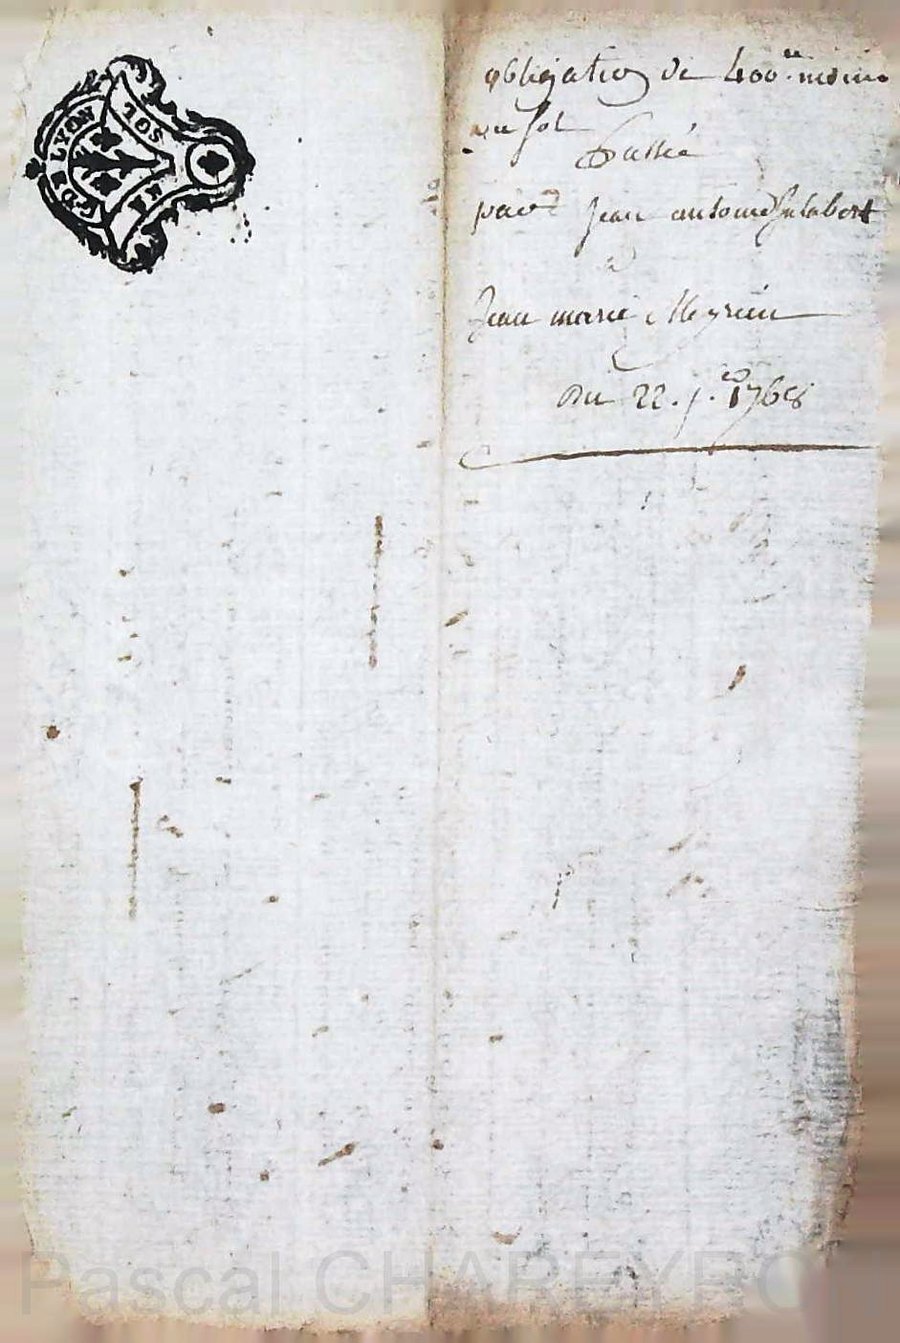 G. DE LYON
SOL
obligation de 400.tt moins
un sol
Passée
par Jean antoine Jalabert
a
Jean marie Meyrieu
Du 22. 1768
Pascal CHAREYRO